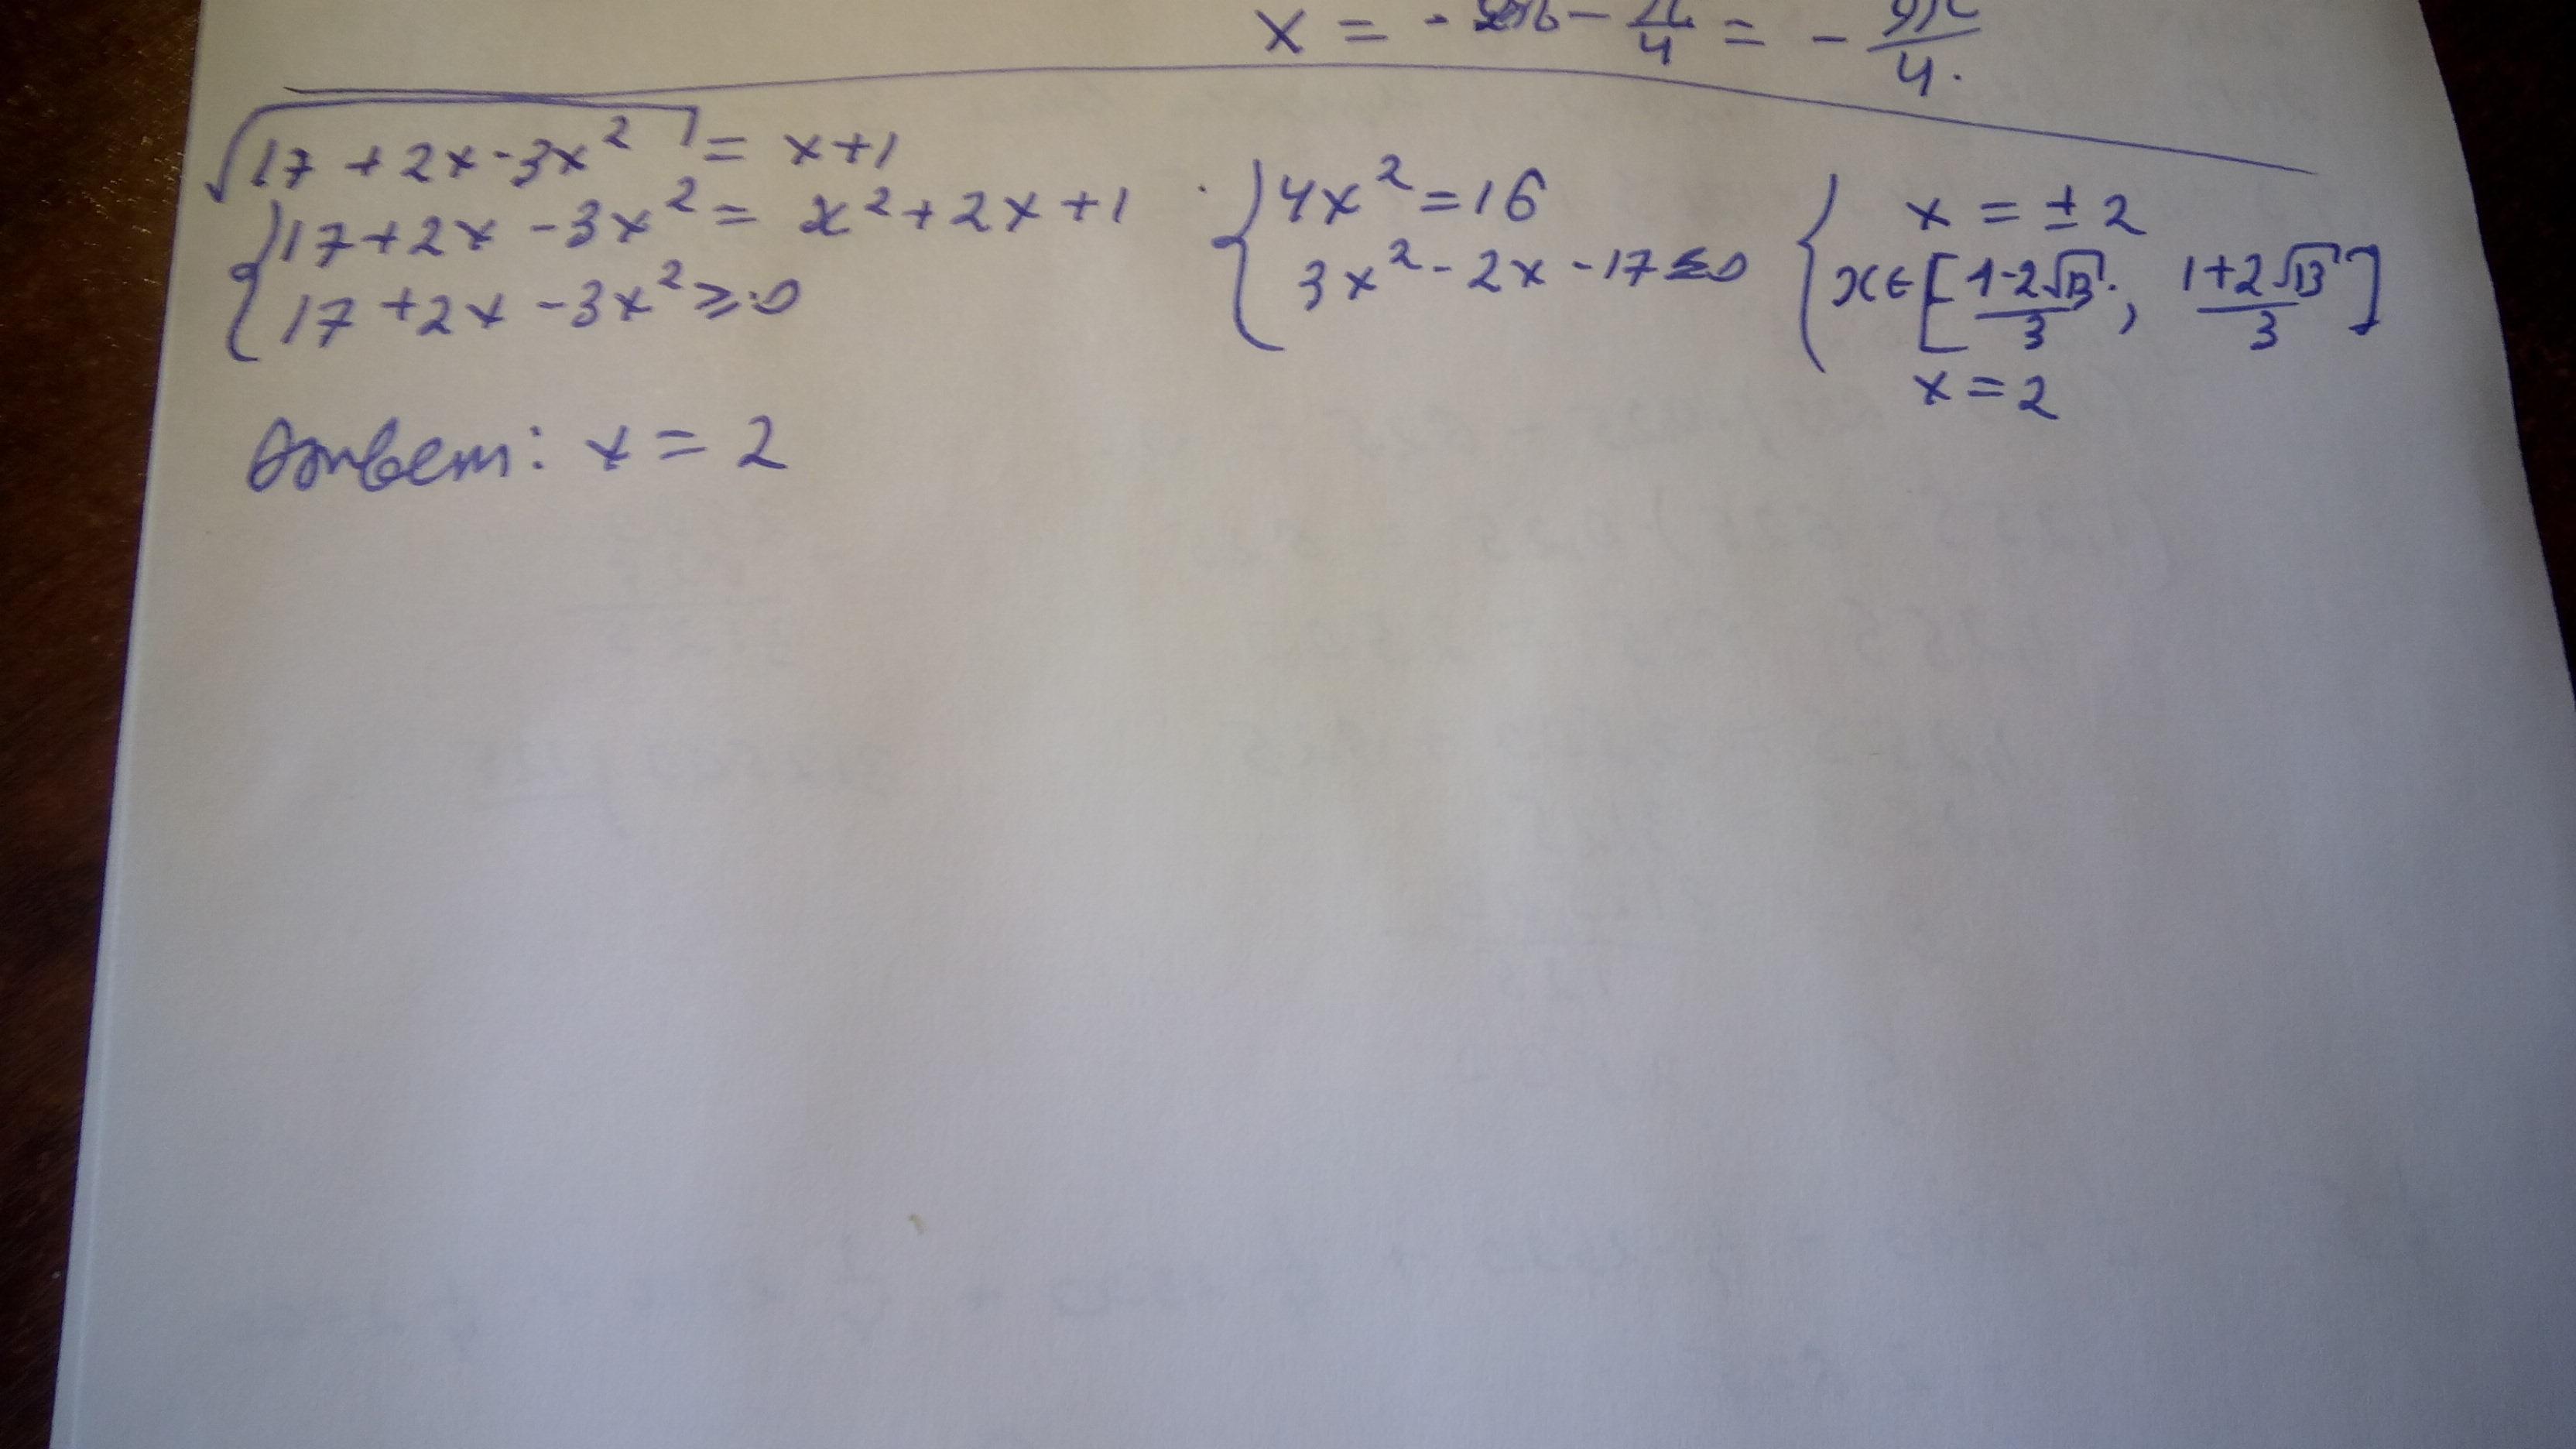 x = - 2π - π/4 = - 9π/4.
√17 + 2x - 3x² = x+1
{ 17 + 2x - 3x² = x² + 2x + 1
17 + 2x - 3x² ≥ 0
{ 4x² = 16
3x² - 2x - 17 ≤ 0
{ x = ± 2
x ∈ [ (1-2√13)/3 ; (1+2√13)/3 ]
x = 2
Ответ: x = 2